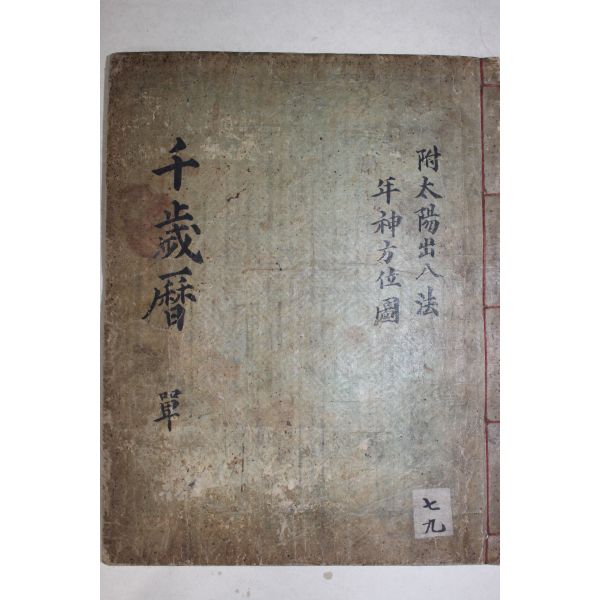 附太陽出入法
年神方位圖
千歲曆
單
七九